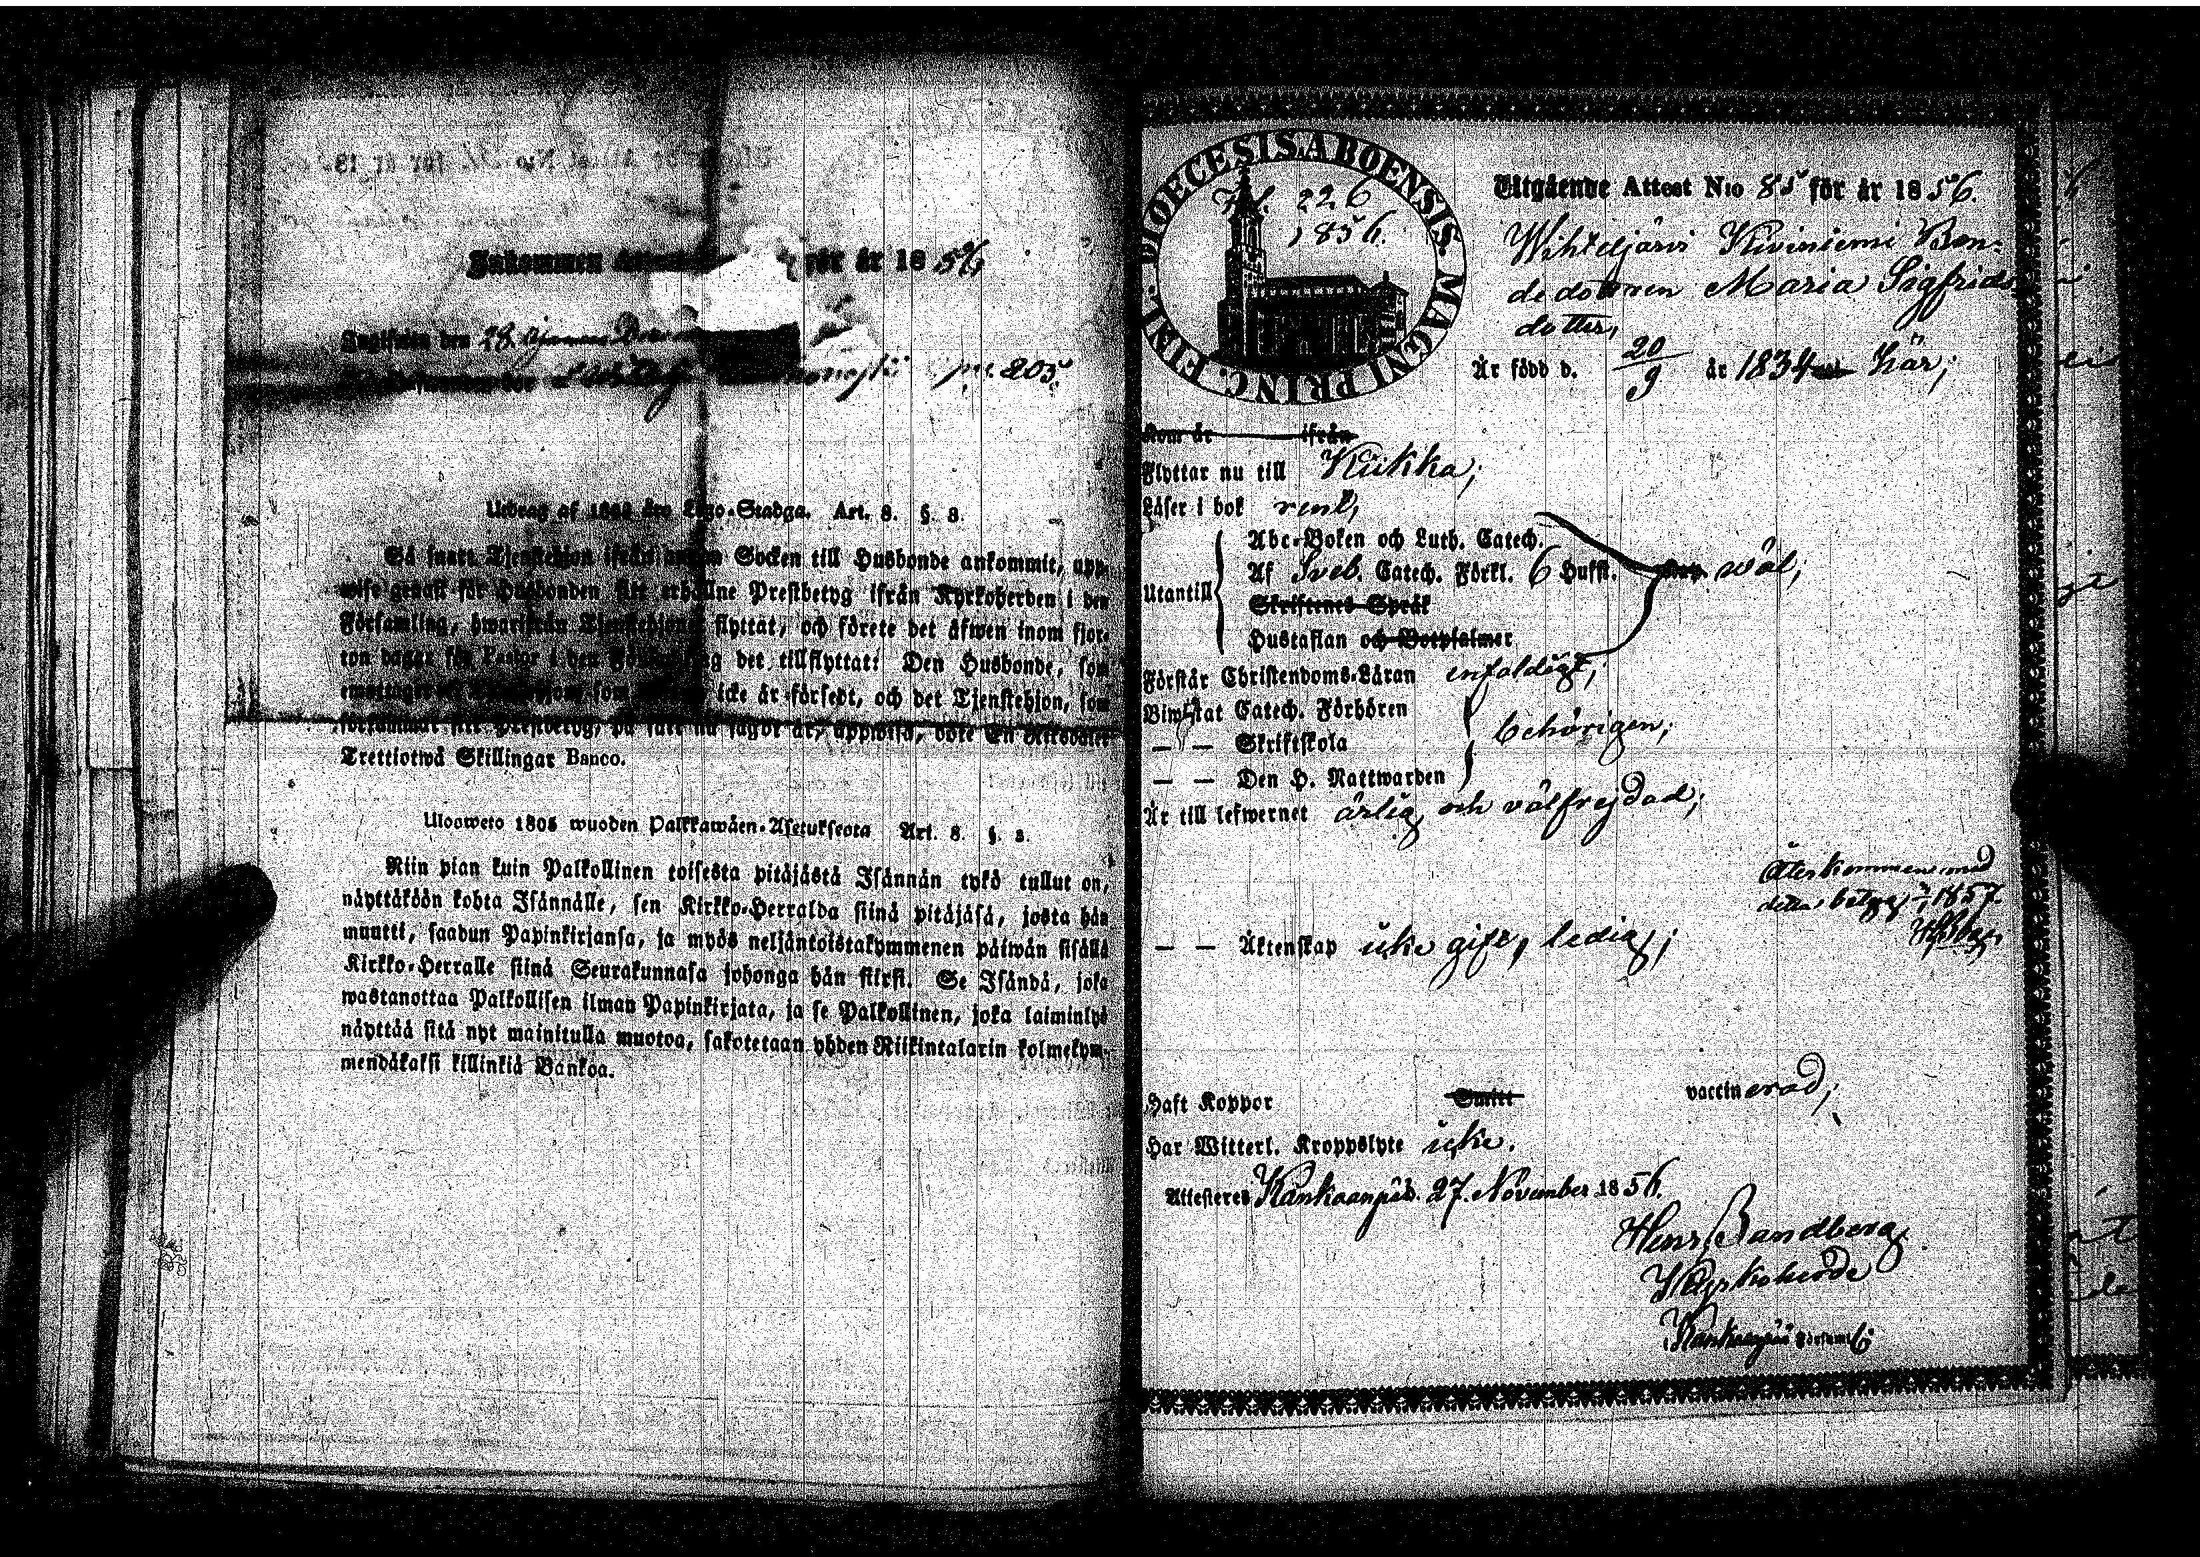 Inkommen för år 1856
Inskrifven den 28.
pag. 205
Utdrag af Lego-Stadga. Art. 8. §. 3.
Så snart Tjenstehjon ifrån annan Socken till Husbonde ankommit, upp-
wise genast för Husbonden sitt erhållne Prestbetyg ifrån Kyrkoherden i den
Församling, hwarifrån Tjenstehjonet flyttat, och förete det äfwen inom fjor-
ton dagar för Pastor i den Församling det tillflyttat: Den Husbonde, som
emottager Tjenstehjon, som icke är försedt, och det Tjenstehjon, som
försummat sitt Prestbetyg, på sätt nu sagdt är, uppwisa, böte En Riksdaler
Trettiotwå Skillingar Banco.
Ulosweto 1805 wuoden Palkkawäen-Asetuksesta Art. 8. §. 3.
Niin pian kuin Palkollinen toisesta pitäjästä Isännän tykö tullut on,
näyttäköön kohta Isännälle, sen Kirkko-Herralda siinä pitäjäsä, josta hän
muutti, saadun Papinkirjansa, ja myös neljäntoistakymmenen päiwän sisällä
Kirkko-Herralle siinä Seurakunnasa johonga hän siirsi. Se Isändä, joka
wastanottaa Palkollisen ilman Papinkirjata, ja se Palkollinen, joka laiminlyö
näyttää sitä nyt mainitulla muotoa, sakotetaan yhden Riikintalarin kolmekym-
mendäkaksi killinkiä Bankoa.
DIOECESIS ABOENSIS. MAGNI PRINC. FINL.
Fol. 226
1856.
Utgående Attest No 85 för år 1856.
Wihteljärvi Kiviniemi Bon-
dedottren Maria Sigfrids
dotter,
Är född d. 20/9 år 1834 här;
Kom år ifrån
Flyttar nu till Kiikka;
Läser i bok rent,
Utantill
Abc-Boken och Luth. Catech.
Af Sveb. Catech. Förkl. 6 Hufst. wäl;
Skriftenes Språk
Hustaflan och Botpsalmer
Förstår Christendoms-Läran enfaldigt;
Biwistat Catech. Förhören
— — Skriftskola behörigen;
— — Den H. Nattwarden
Är till lefwernet ärlig och välfrejdad;
Återkommen med
detta betyg 1857.
— — Äktenskap icke gift, ledig;
Haft Koppor Smitt vaccinerad;
Har Witterl. Kroppslyte icke.
Attesteres Kankaanpää. 27. November 1856.
Henr. Sandberg
Kyrkoherde
Kankaanpää Församl.